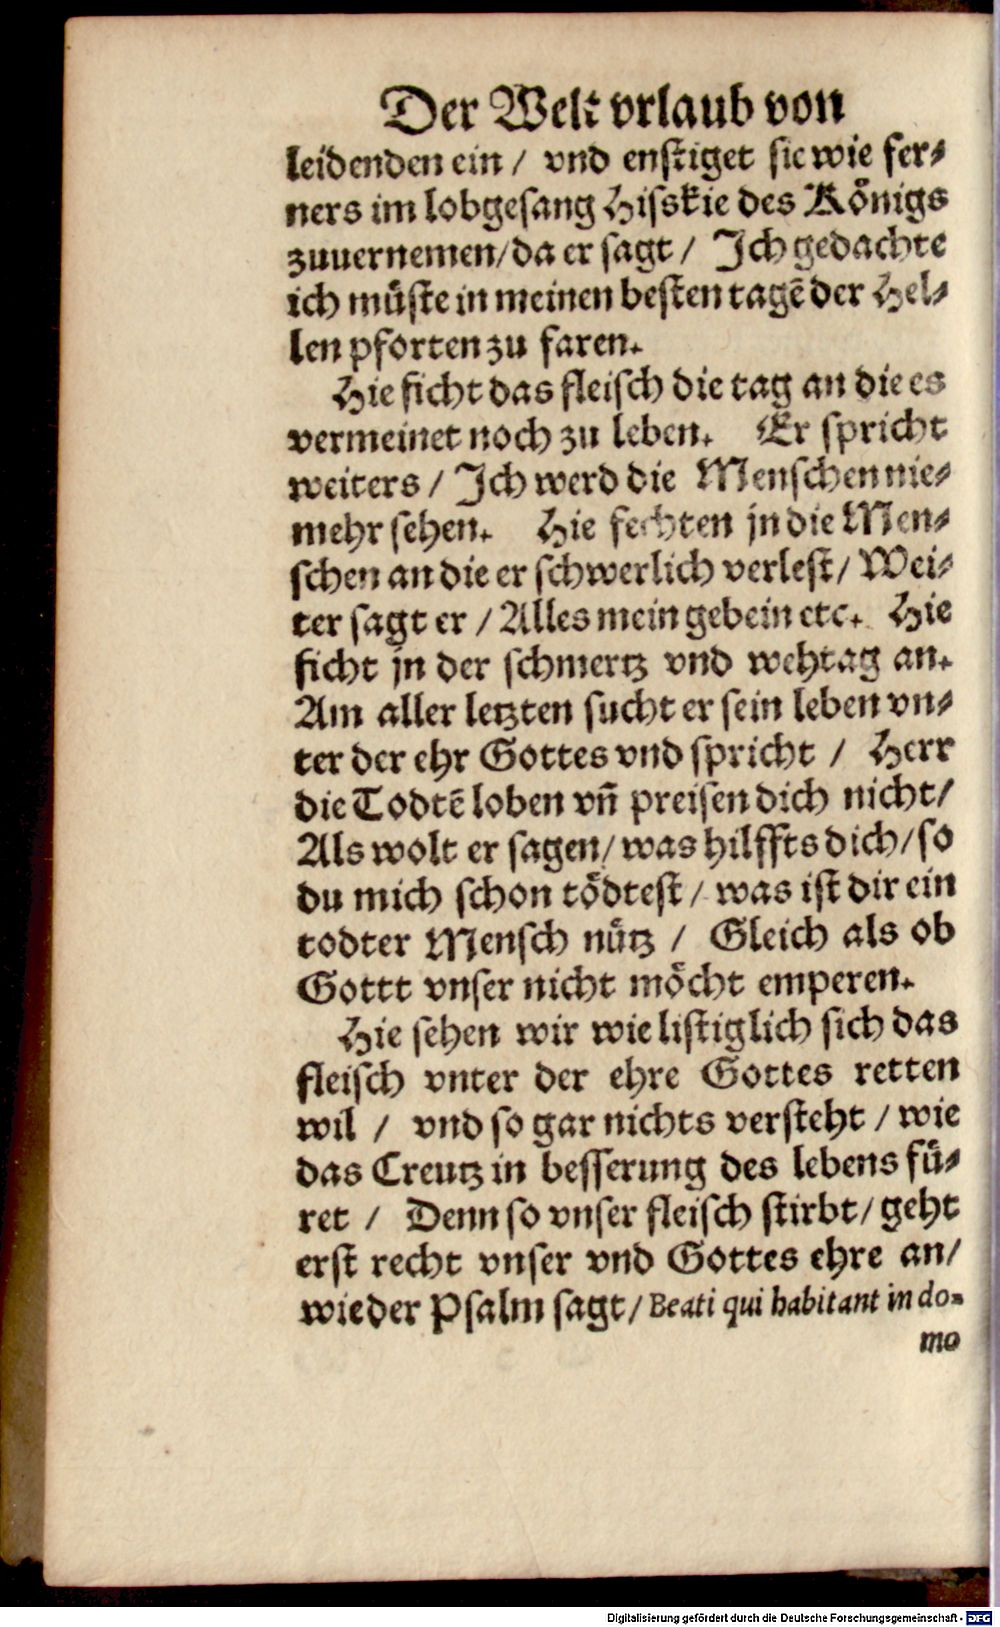 Der Welt vrlaub von
leidenden ein / vnd enstiget sie wie fer⸗
ners im lobgesang Hisskie des Koͤnigs
zuuernemen / da er sagt / Ich gedachte
ich muͤste in meinen besten tagē der Hel⸗
len pforten zu faren.
Hie ficht das fleisch die tag an die es
vermeinet noch zu leben. Er spricht
weiters / Ich werd die Menschen nie⸗
mehr sehen. Hie fechten jn die Men⸗
schen an die er schwerlich verlest / Wei⸗
ter sagt er / Alles mein gebein etc. Hie
ficht jn der schmertz vnd wehtag an.
Am aller letzten sucht er sein leben vn⸗
ter der ehr Gottes vnd spricht / Herr
die Todtē loben vn̄ preisen dich nicht /
Als wolt er sagen / was hilffts dich / so
du mich schon toͤdtest / was ist dir ein
todter Mensch nuͤtz / Gleich als ob
Gottt vnser nicht moͤcht emperen.
Hie sehen wir wie listiglich sich das
fleisch vnter der ehre Gottes retten
wil / vnd so gar nichts versteht / wie
das Creutz in besserung des lebens fuͤ⸗
ret / Denn so vnser fleisch stirbt / geht
erst recht vnser vnd Gottes ehre an /
wie der Psalm sagt / Beati qui habitant in do-
mo
Digitalisierung gefördert durch die Deutsche Forschungsgemeinschaft - DFG